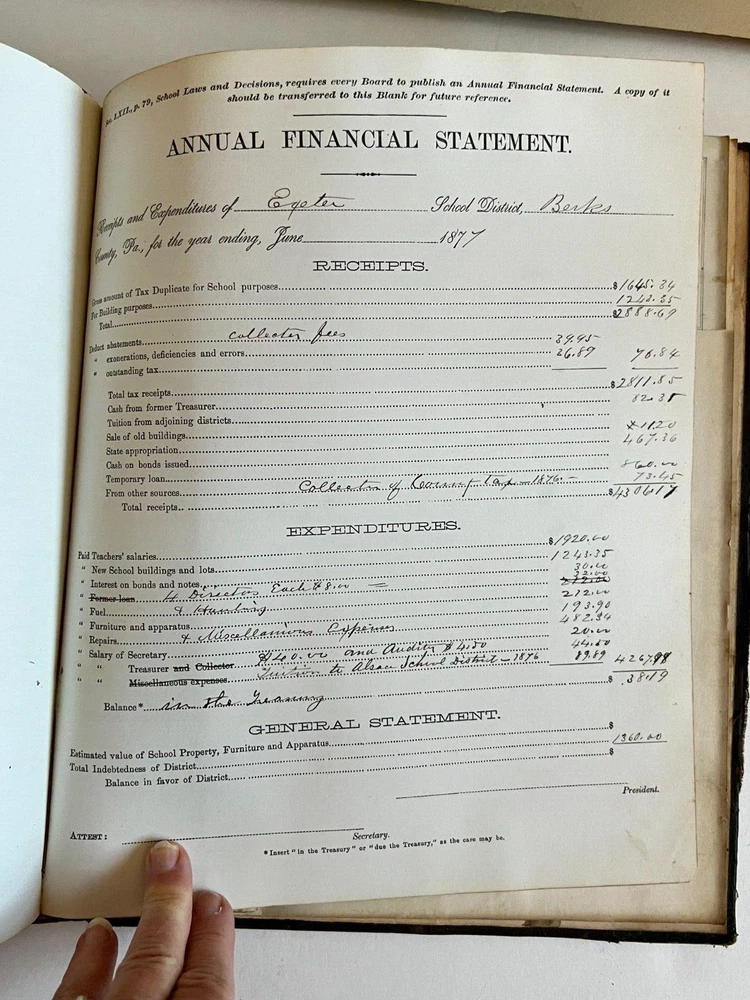 LXII., p. 79, School Laws and Decisions, requires every Board to publish an Annual Financial Statement. A copy of it
should be transferred to this Blank for future reference.
ANNUAL FINANCIAL STATEMENT.
Receipts and Expenditures of Exeter School District, Berks
County, Pa., for the year ending, June 1877
RECEIPTS.
Gross amount of Tax Duplicate for School purposes $1645.34
For Building purposes 1243.35
Total $2888.69
Deduct abatements collector fees 39.95
" exonerations, deficiencies and errors 36.89 76.84
" outstanding tax
Total tax receipts $2811.85
Cash from former Treasurer 82.31
Tuition from adjoining districts
Sale of old buildings 11.20
State appropriation 467.36
Cash on bonds issued
Temporary loan 860.00
From other sources Collector of County tax 1876. 73.45
Total receipts $4306.17
EXPENDITURES.
Paid Teachers' salaries $1920.00
" New School buildings and lots 1243.35
" Interest on bonds and notes 30.00
" Former loan 4 Directors Each $8.00 = 32.00
" Fuel 212.00
" Furniture and apparatus 193.90
" Repairs & Miscellanious Expenses 482.34
" Salary of Secretary 20.00
" " Treasurer and Collector $40.00 and Auditor $4.50 44.50
" " Miscellaneous expenses Tuition to Alsace School District – 1876 89.89 4267.98
Balance* in the Treasury $ 38.19
GENERAL STATEMENT.
Estimated value of School Property, Furniture and Apparatus $
Total Indebtedness of District 1360.00
Balance in favor of District $
President.
ATTEST:
Secretary.
*Insert "in the Treasury" or "due the Treasury," as the case may be.